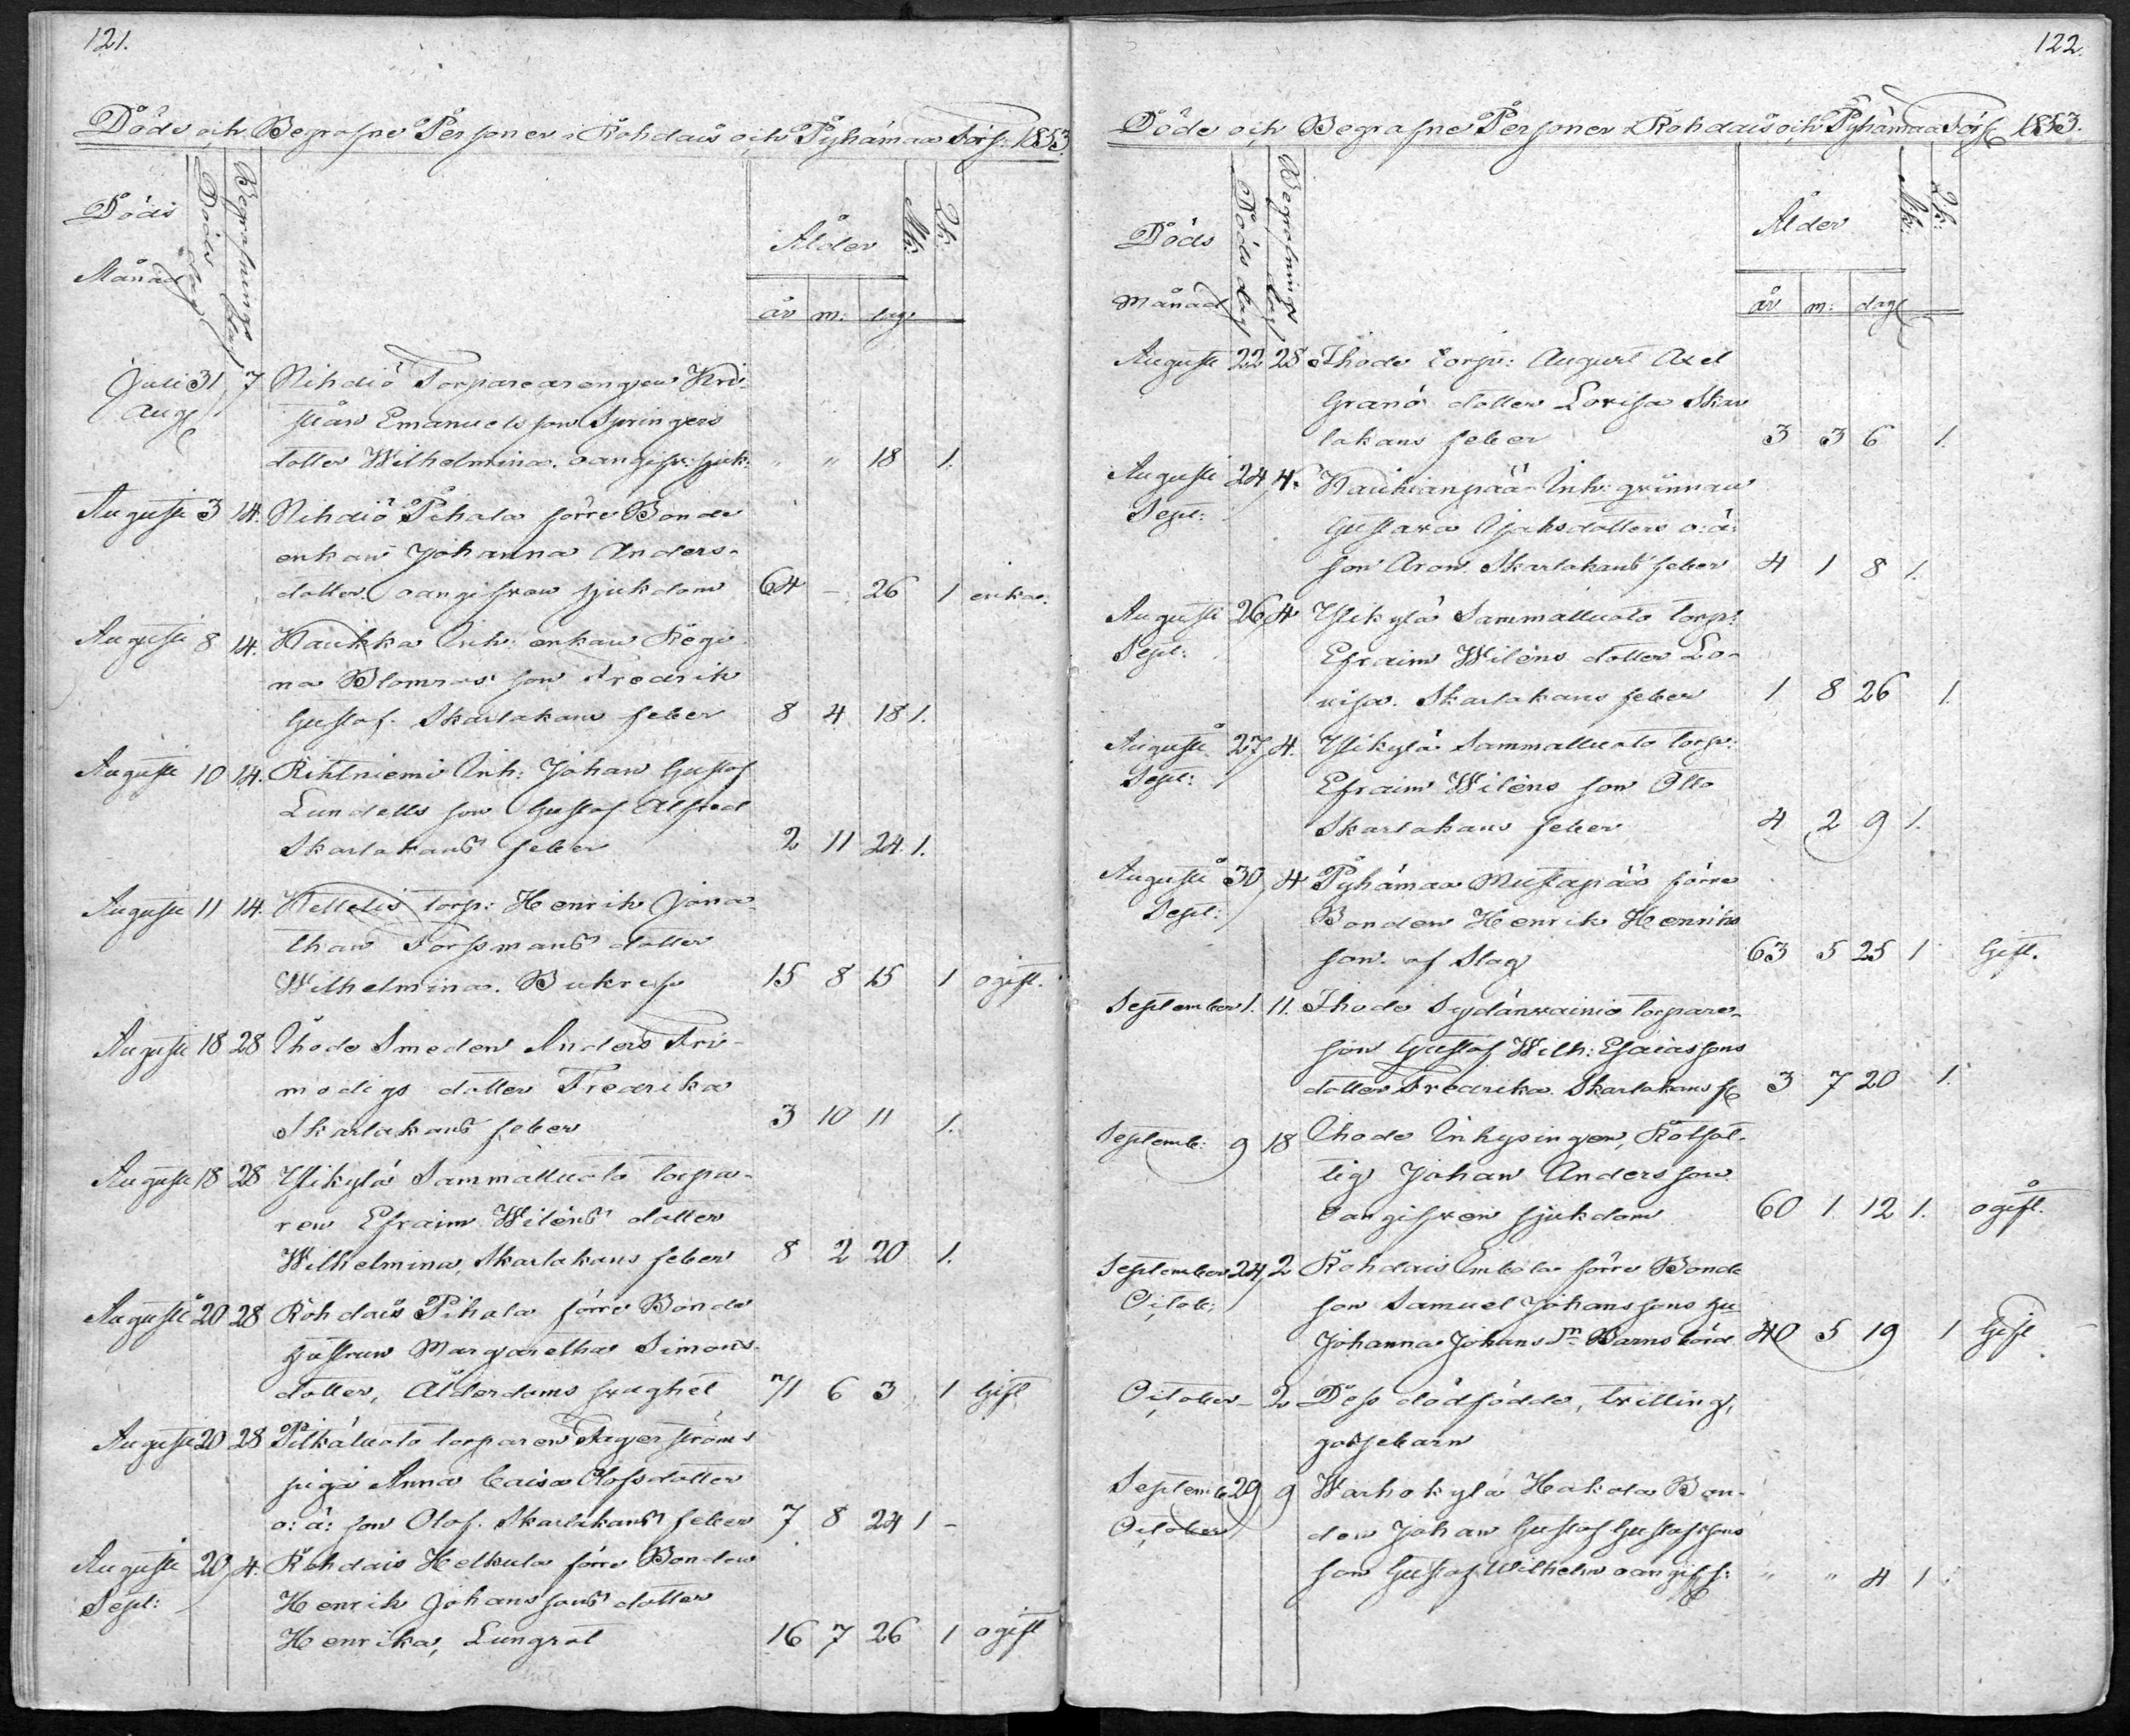 121.
Döde och Begrafne Personer i Rohdais och Pyhämaa Förs: 1853.
Döds
Månad
Döds dag
Begrafnings dag
Ålder
Mk:
Qk:
år m: dag
Juli 31 7 Nihdiö Torparedrengen Kri-
Aug
stian Emanuelsson Springers
dotter Wilhelmina. oangifv: sjuk: " " 18 1.
Augusti 3 14. Nihdiö Pihala förre Bonde
enkan Johanna Anders-
dotter. oangifven sjukdom 64 - 26 1 enka.
Augusti 8 14. Haukka Inh: enkan Regi-
na Blomros son Fredrik
Gustaf. Skarlakans feber 8 4 18 1.
Augusti 10 14. Rihtniemi Inh: Johan Gustaf
Lundells son Gustaf Alfred
Skarlakans feber 2 11 24. 1.
Augusti 11 14. Torp: Henrik Jona-
than Forssmans dotter
Wilhelmina. Bukref 15 8 15 1 ogift.
Augusti 18 28 Ihode Smeden Anders Fri-
modigs dotter Fredrika
Skarlakans feber 3 10 11 1.
Augusti 18 28 Ylikylä Sammalluoto torpa-
ren Efraim Wiléns dotter
Wilhelmina, Skarlakans feber 8 2 20 1.
Augusti 20 28 Rohdais Pihala förre Bonde
hustrun Margaretha Simons-
dotter, Ålderdoms svaghet 71 6 3 1 Gift
Augusti 20 28 Pitkäluoto torparen Fagerströms
piga Anna Caisa Olofsdotter
o: ä: son Olof. Skarlakans feber 7 8 24 1 -
Augusti 20 4. Rohdais Heikula förre Bonden
Sept:
Henrik Johanssons dotter
Henrika, Lungsot 16 7 26 1 ogift
122.
Döde och Begrafne Personer i Rohdais och Pyhämaa Förs 1853.
Döds
Månad
Döds dag
Begrafnings dag
Ålder
Mk:
Qk:
år m: dag
Augusti 22 28 Ihode torp: August Axel
Granö dotter Lovisa Skar
lakans feber 3 3 6 1.
Augusti 24 4. Kaukianpää Inh: qvinnan
Sept:
Gustava Isaksdotters o: ä:
son Aron. Skarlakans feber 4 1 8 1.
Augusti 26 4 Ylikylä Sammalluoto torp:
Sept:
Efraim Wiléns dotter Lo-
visa. Skarlakans feber 1 8 26 1.
Augusti 27 4. Ylikylä Sammalluoto torp:
Sept:
Efraim Wiléns son Otto
Skarlakans feber 4 2 9 1.
Augusti 30 4 Pyhämaa Mustapää förre
Sept:
Bonden Henrik Henriks
son. af Slag 63 5 25 1 Gift.
September 1. 11. Ihode Sydänvainio torpare-
son Gustaf Wilh: Esaiassons
dotter Fredrika. Skarlakans f 3 7 20 1.
Septemb: 9 18 Ihode Inhysingen, Rotfat-
tig Johan Andersson
Oangifven sjukdom 60 1 12 1. ogift.
September 24 2 Rohdais förre Bonde
Octob:
son Samuel Johanssons hu
Johanna Johans Dr Barnsbörd 40 5 19 1 Gift
October - 2 Dess dödfödde, tvilling,
gossebarn
Septemb 29 9 Warhokylä Hakola Bon-
October
den Johan Gustaf Gustafssons
son Gustaf Wilhelm oangifs: " " 4 1